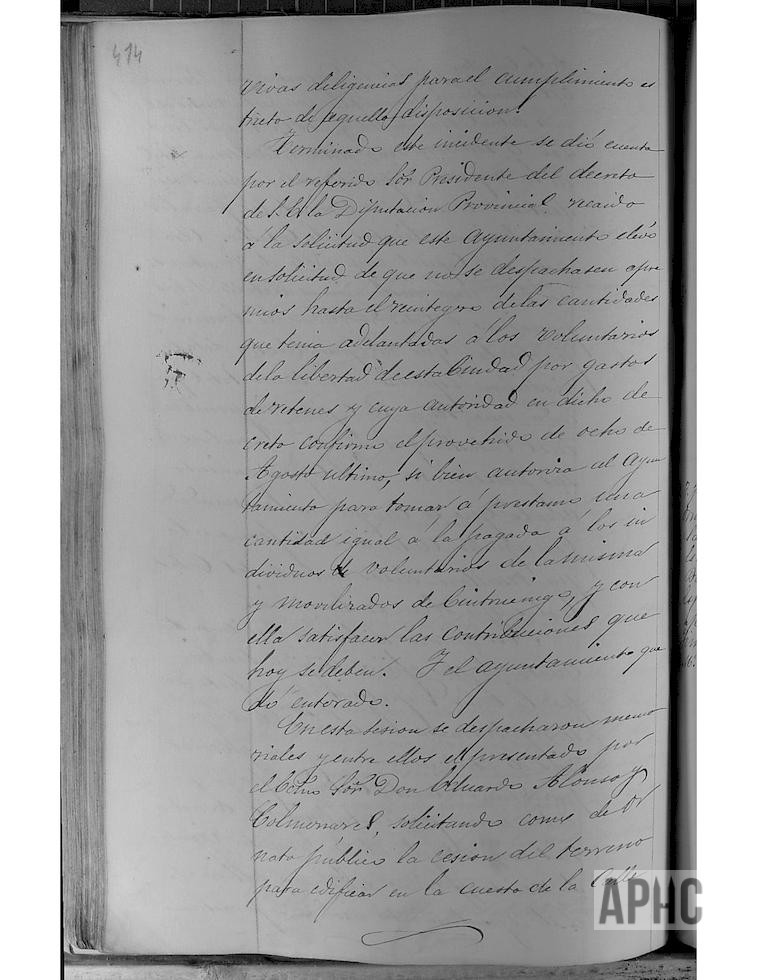 414
vivas diligencias para el cumplimiento es
tricto de aquella disposicion.
Terminado este incidente se dió cuenta
por el referido Sor. Presidente del decreto
de S. E. la Diputacion Provincial recaido
á la solicitud que este Ayuntamiento elevó
en solicitud de que no se despachasen apre
mios hasta el reintegro de las cantidades
que tenia adelantadas á los Voluntarios
de la libertad de esta Ciudad por gastos
de retenes y cuya autoridad en dicho de
creto confirma el provehido de ocho de
Agosto ultimo, si bien autoriza al Ayun
tamiento para tomar á prestamo una
cantidad igual á la pagada á los in
dividuos de voluntarios de la misma
y movilizados de Cintruenigo, y con
ella satisfacer las contribuciones que
hoy se deben. Y el ayuntamiento que
dó enterado.
En esta sesion se despacharon memo
riales y entre ellos el presentado por
el Sor. Don Eduardo Alonso y
Colmenares, solicitando como de Or
nato público la cesion del terreno
para edificar en la cuesta de la Calle
APHC